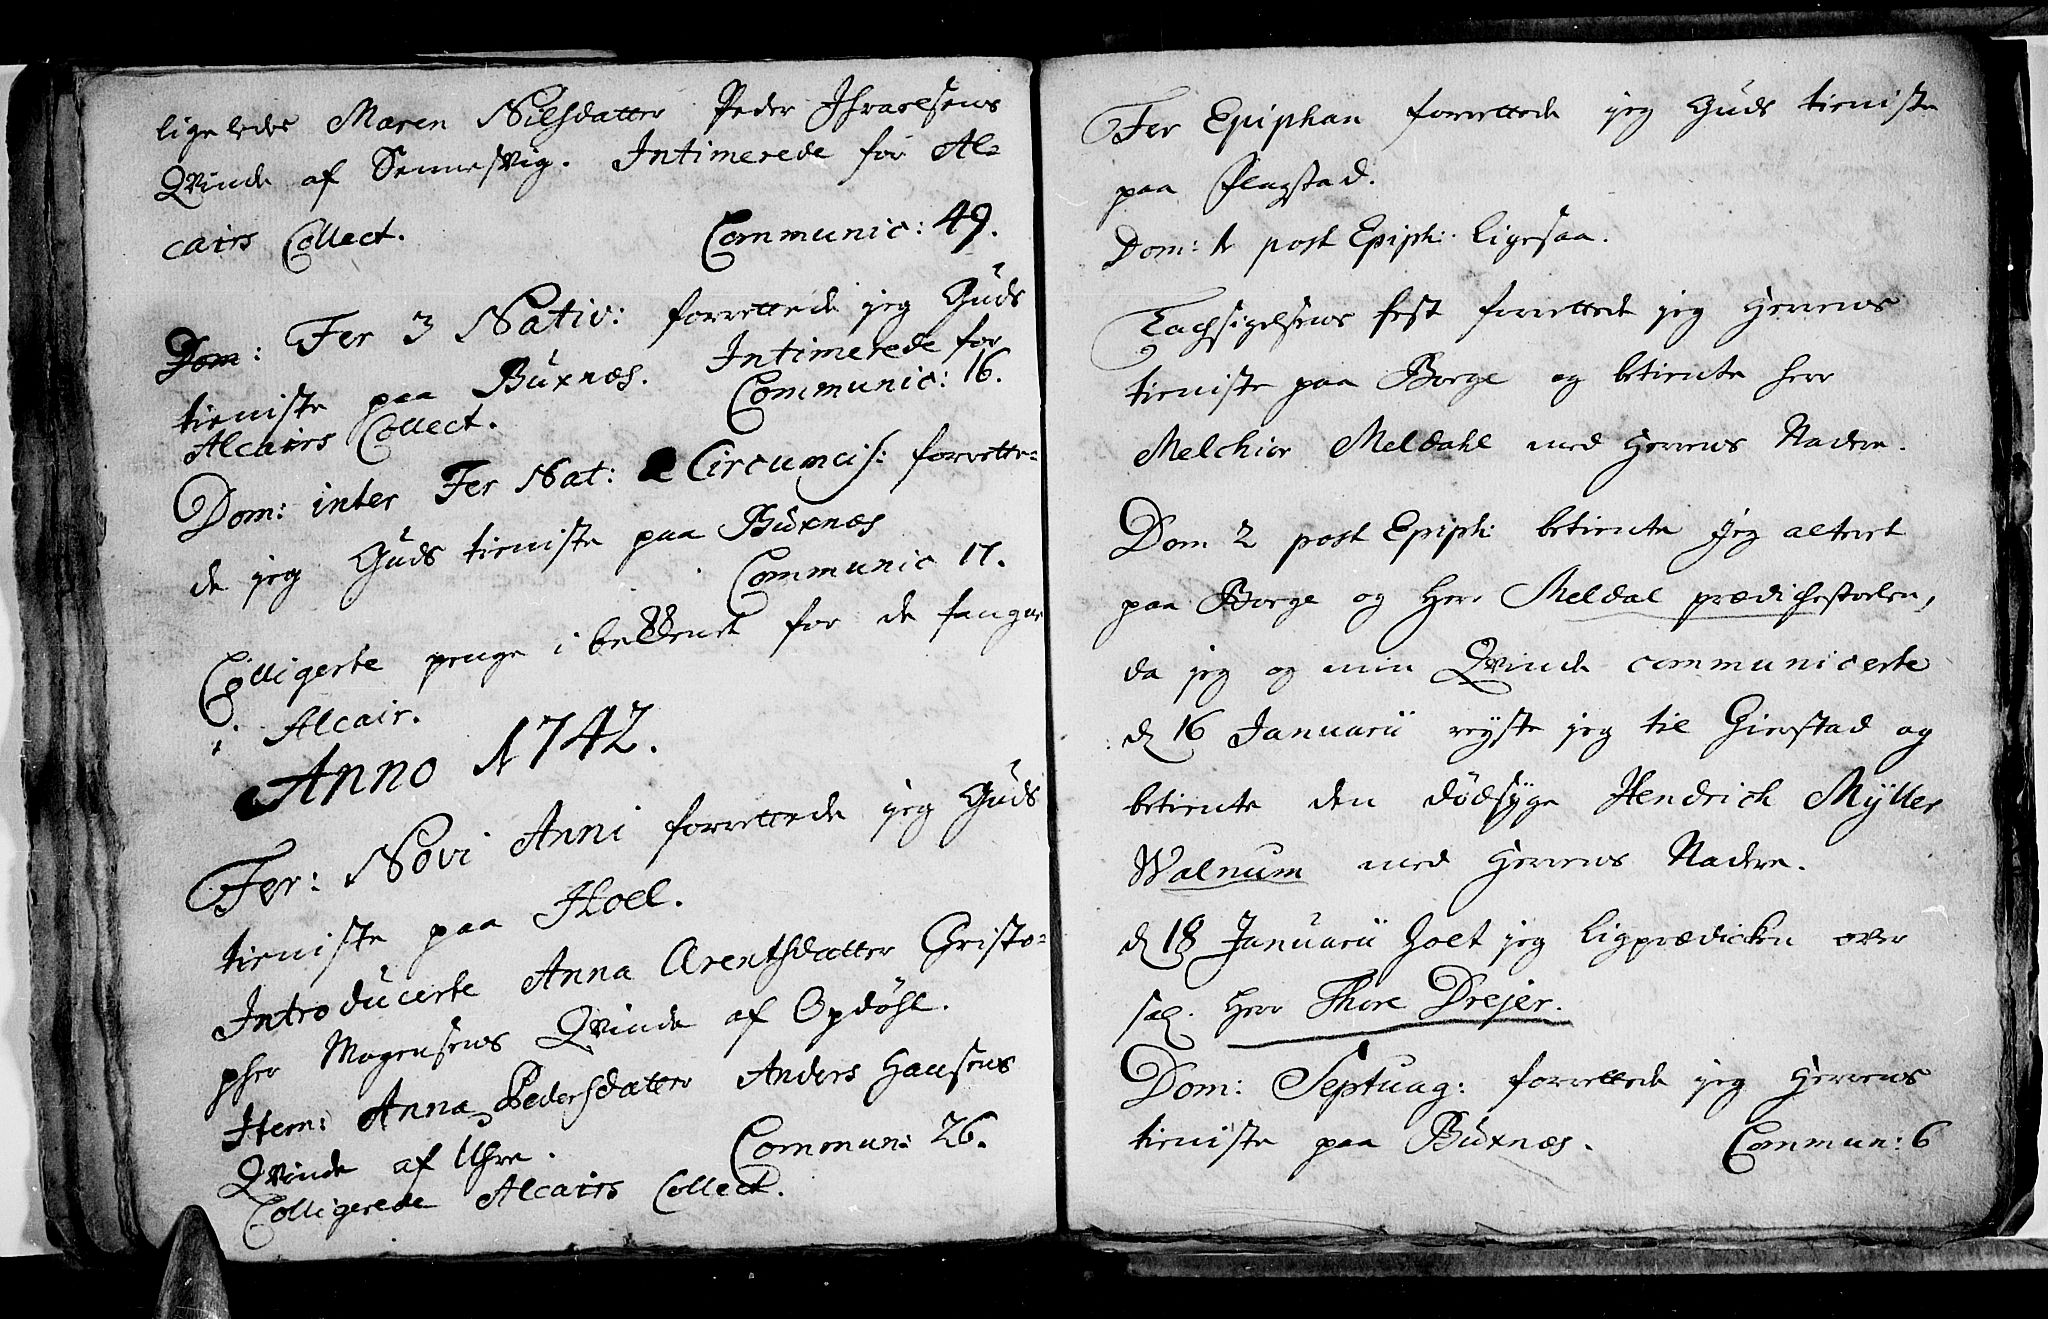 ligeledes Maren Nilsdatter Peder Isvaelsens
Qvinde af Sennesvig. Intimerede for Al=
cairs Collect. Communic: 49.
Dom: Fer 3 Nativ: forrettede jeg Guds
tieniste paa Buxnæs. Intimerede for
Alcairs Collect. Communic: 16.
Dom: inter Fer Nat: & Circumcis: forrette=
de jeg Guds tieniste paa Buxnæs
Communic 17.
Colligerte penge i bekkenet for de fangne
i Alcair.
Anno 1742.
Fer: Novi Anni forrettede jeg Guds
tieniste paa Hoel.
Introducerte Anna Arentsdatter Christo=
pher Mogensens Qvinde af Opdøhl.
Item: Anna Pedersdatter Anders Hansens
Qvinde af Uhre. Commun: 26.
Colligerede Alcairs Collect.
Fer Epiphan forrettede jeg Guds tieniste
paa Flagstad.
Dom: 1 post Epiph: ligesaa.
Tachsigelsens fest forrettede jeg Herrens
tieniste paa Borge og betiente herr
Melchior Meldahl med Herrens Nadere.
Dom 2 post Epiph: betiente jeg alteret
paa Borge og Herr Meldal prædichestoelen,
da jeg og min Qvinde communicerte
d 16 Januarii reyste jeg til Gierstad og
betiente den dødsyge Hendrich Mÿller
Walnum med Herrens Nadere.
d 18 Januarii holt jeg ligprædicken over
sal. Herr Thore Drejer.
Dom: Septuag: forrettede jeg Herrens
tieniste paa Buxnæs. Commun: 6